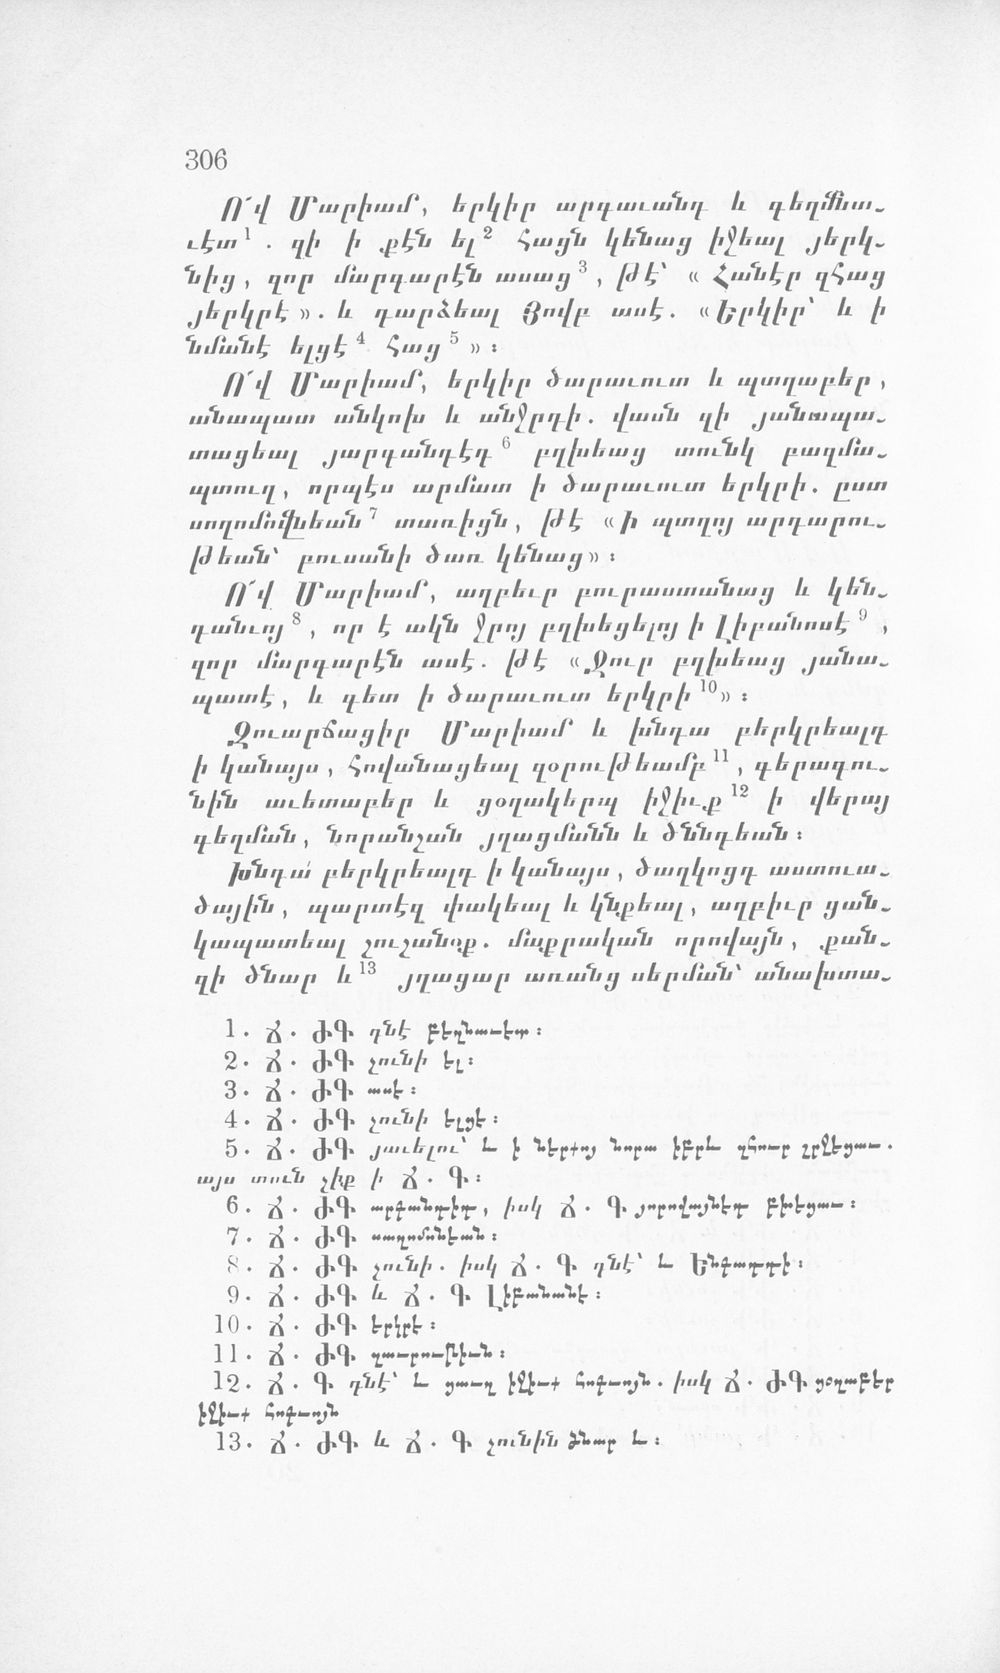 306
Ո՜վ Մարիամ, երկիր արգաւանդ և գեղմնա-
ւէտ 1 . զի ի քէն ել 2 Հացն կենաց իջեալ յերկ-
նից, զոր մարգարէն ասաց 3 , թէ՝ « Հանէր զհաց
յերկրէ ». և դարձեալ Յովբ ասէ. «Երկիր՝ և ի
նմանէ ելցէ 4 հաց 5 » :
Ո՜վ Մարիամ, երկիր ծարաւուտ և պտղաբեր,
անապատ անկոխ և անջրդի. վասն զի յանապա-
տացեալ յարգանդէդ 6 բղխեաց տունկ բազմա-
պտուղ, որպէս արմատ ի ծարաւուտ երկրի. ըստ
սողոմովնեան 7 տառիցն, թէ « ի պտղոյ արդարու-
թեան՝ բուսանի ծառ կենաց» :
Ո՜վ Մարիամ, աղբեւր բուրաստանաց և կեն-
դանւոյ 8 , որ է ակն ջրոյ բղխեցելոյ ի Լիբանոսէ 9 ,
զոր մարգարէն ասէ. թէ « Ջուր բղխեաց յանա-
պատէ, և գետ ի ծարաւուտ երկրի 10 » :
Զուարճացիր Մարիամ և խնդա բերկրեալդ
ի կանայս, հովանացեալ զօրութեամբ 11 , գերագու-
նին աւետաբեր և ցօղակերպ իջիւք 12 ի վերայ
գեղման, նորանշան յղացմանն և ծննդեան :
Խնդա՛ բերկրեալդ ի կանայս, ծաղկոցդ աստուա-
ծային, պարտէզ փակեալ և կնքեալ, աղբիւր ցան-
կապատեալ շուշանօք. մաքրական որովայն, քան-
զի ծնար և 13 յղացար առանց սերման՝ անախտա-
1. Ճ. ԺԳ դնէ բեղնաւէտ :
2. Ճ. ԺԳ չունի ել :
3. Ճ. ԺԳ ասէ :
4. Ճ. ԺԳ չունի ելցէ :
5. Ճ. ԺԳ յաւելու՝ և ի ներքոյ նորա իբրև զհուր շրջեցաւ.
այս տուն չիք ի Ճ. Գ :
6. Ճ. ԺԳ արգանդէդ, իսկ Ճ. Գ յորովայնէդ բխեցաւ :
7. Ճ. ԺԳ սաղոմոնեան :
8. Ճ. ԺԳ չունի. իսկ Ճ. Գ դնէ՝ և Ենգադդի :
9. Ճ. ԺԳ և Ճ. Գ Լիբանանէ :
10. Ճ. ԺԳ երկրէ :
11. Ճ. ԺԳ զաւրութիւն :
12. Ճ. Գ դնէ՝ և ցաւղ իջիւք հոգւոյն. իսկ Ճ. ԺԳ ցօղաբեր
իջիւք հոգւոյն
13. Ճ. ԺԳ և Ճ. Գ չունին ծնար և :